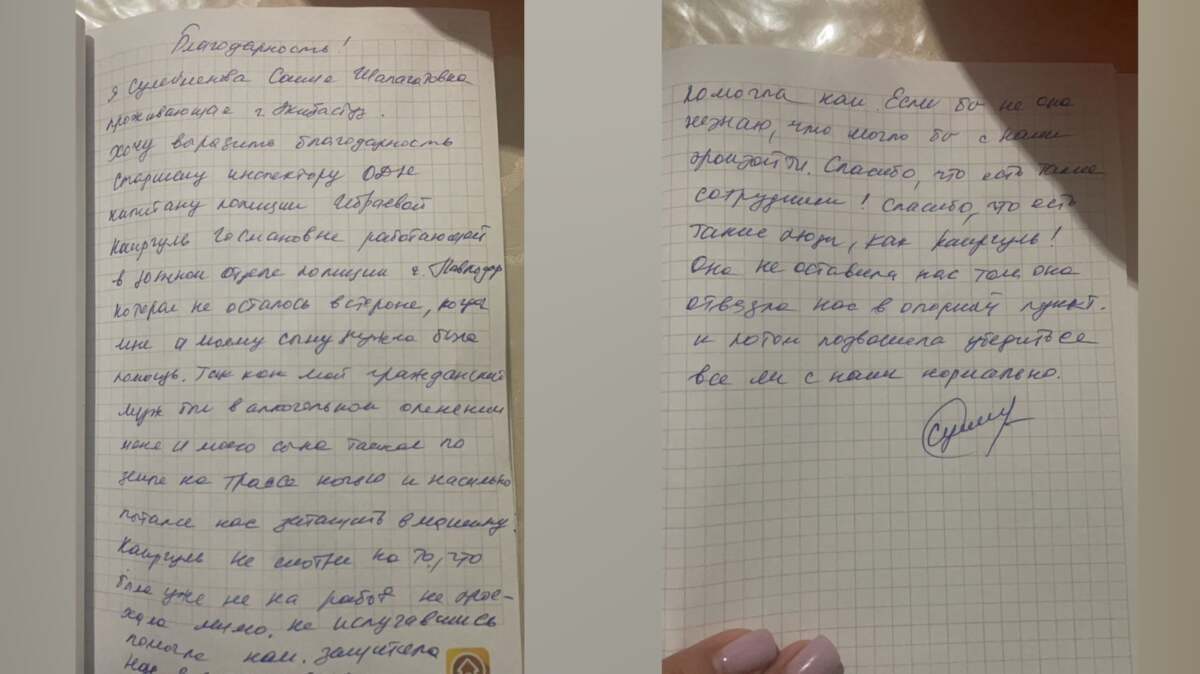 Благодарность!
я Сулейменова Сания Шапагатовна
проживающае г. Экибастуз.
хочу выразить благодарность
старшему инспектору ОДН
капитану полиции Ибраевой
Каиргуль Госмановне работающей
в южном отделе полиции г. Павлодар
которая не осталось в стороне, когда
мне и моему сыну нужна была
помощь. Так как мой гражданский
муж был в алкогольном опенении
меня и моего сына таскал по
на трассе ночью и насильно
пытался нас затащить в машину.
Каиргуль не смотря на то, что
была уже не на работе не прое-
хала мимо, не испугавшись
помогла нам. защитила
нас
помогла нам. Если бы не она
незнаю, что могло бы с нами
произойти. Спасибо, что есть такие
сотрудники! Спасибо, что есть
такие люди, как Каиргуль!
Она не оставила нас там, она
отвезла нас в опорный пункт.
и потом подвошела убедиться
все ли с нами нормально.